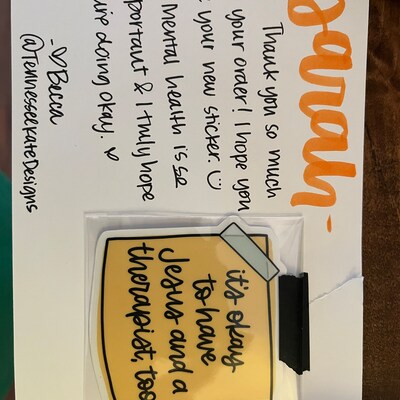 Sarah-
Thank you so much
your order! I hope you
your new sticker. ☺
Mental health is so
portant & I truly hope
're doing okay. ♥
-♡Becca
@TennesseeKateDesigns
it's okay
to have
Jesus and a
therapist, too